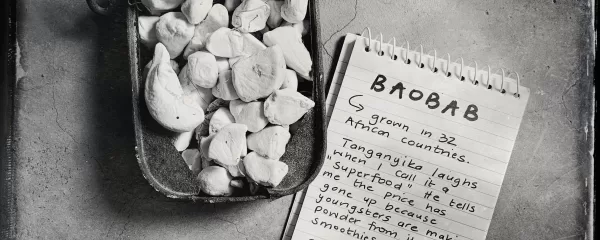 BAOBAB
↳ grown in 32
African countries.
Tanganyika laughs
when I call it a
"Superfood" He tells
me the price has
gone up because
youngsters are maki
powder from i
smoothies